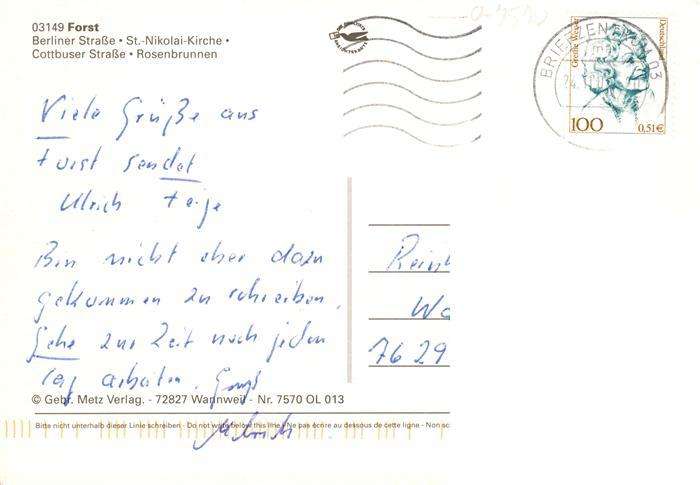 03149 Forst
Berliner Straße • St.-Nikolai-Kirche •
Cottbuser Straße • Rosenbrunnen
Deutschland
Grethe Weiser
100
0,51€
BRIEFZENTRUM 03
Viele Grüße aus
Forst sendet
Ulrich Feige
Bin nicht eher dazu
gekommen zu schreiben.
Gehe zur Zeit noch jeden
Tag arbeiten. Gruß
Ulrich
Rein
Wa
76 29
© Gebr. Metz Verlag. - 72827 Wannweil - Nr. 7570 OL 013
Bitte nicht unterhalb dieser Linie schreiben - Do not write below this line - Ne pas écrire au dessous de cette ligne - Non sc